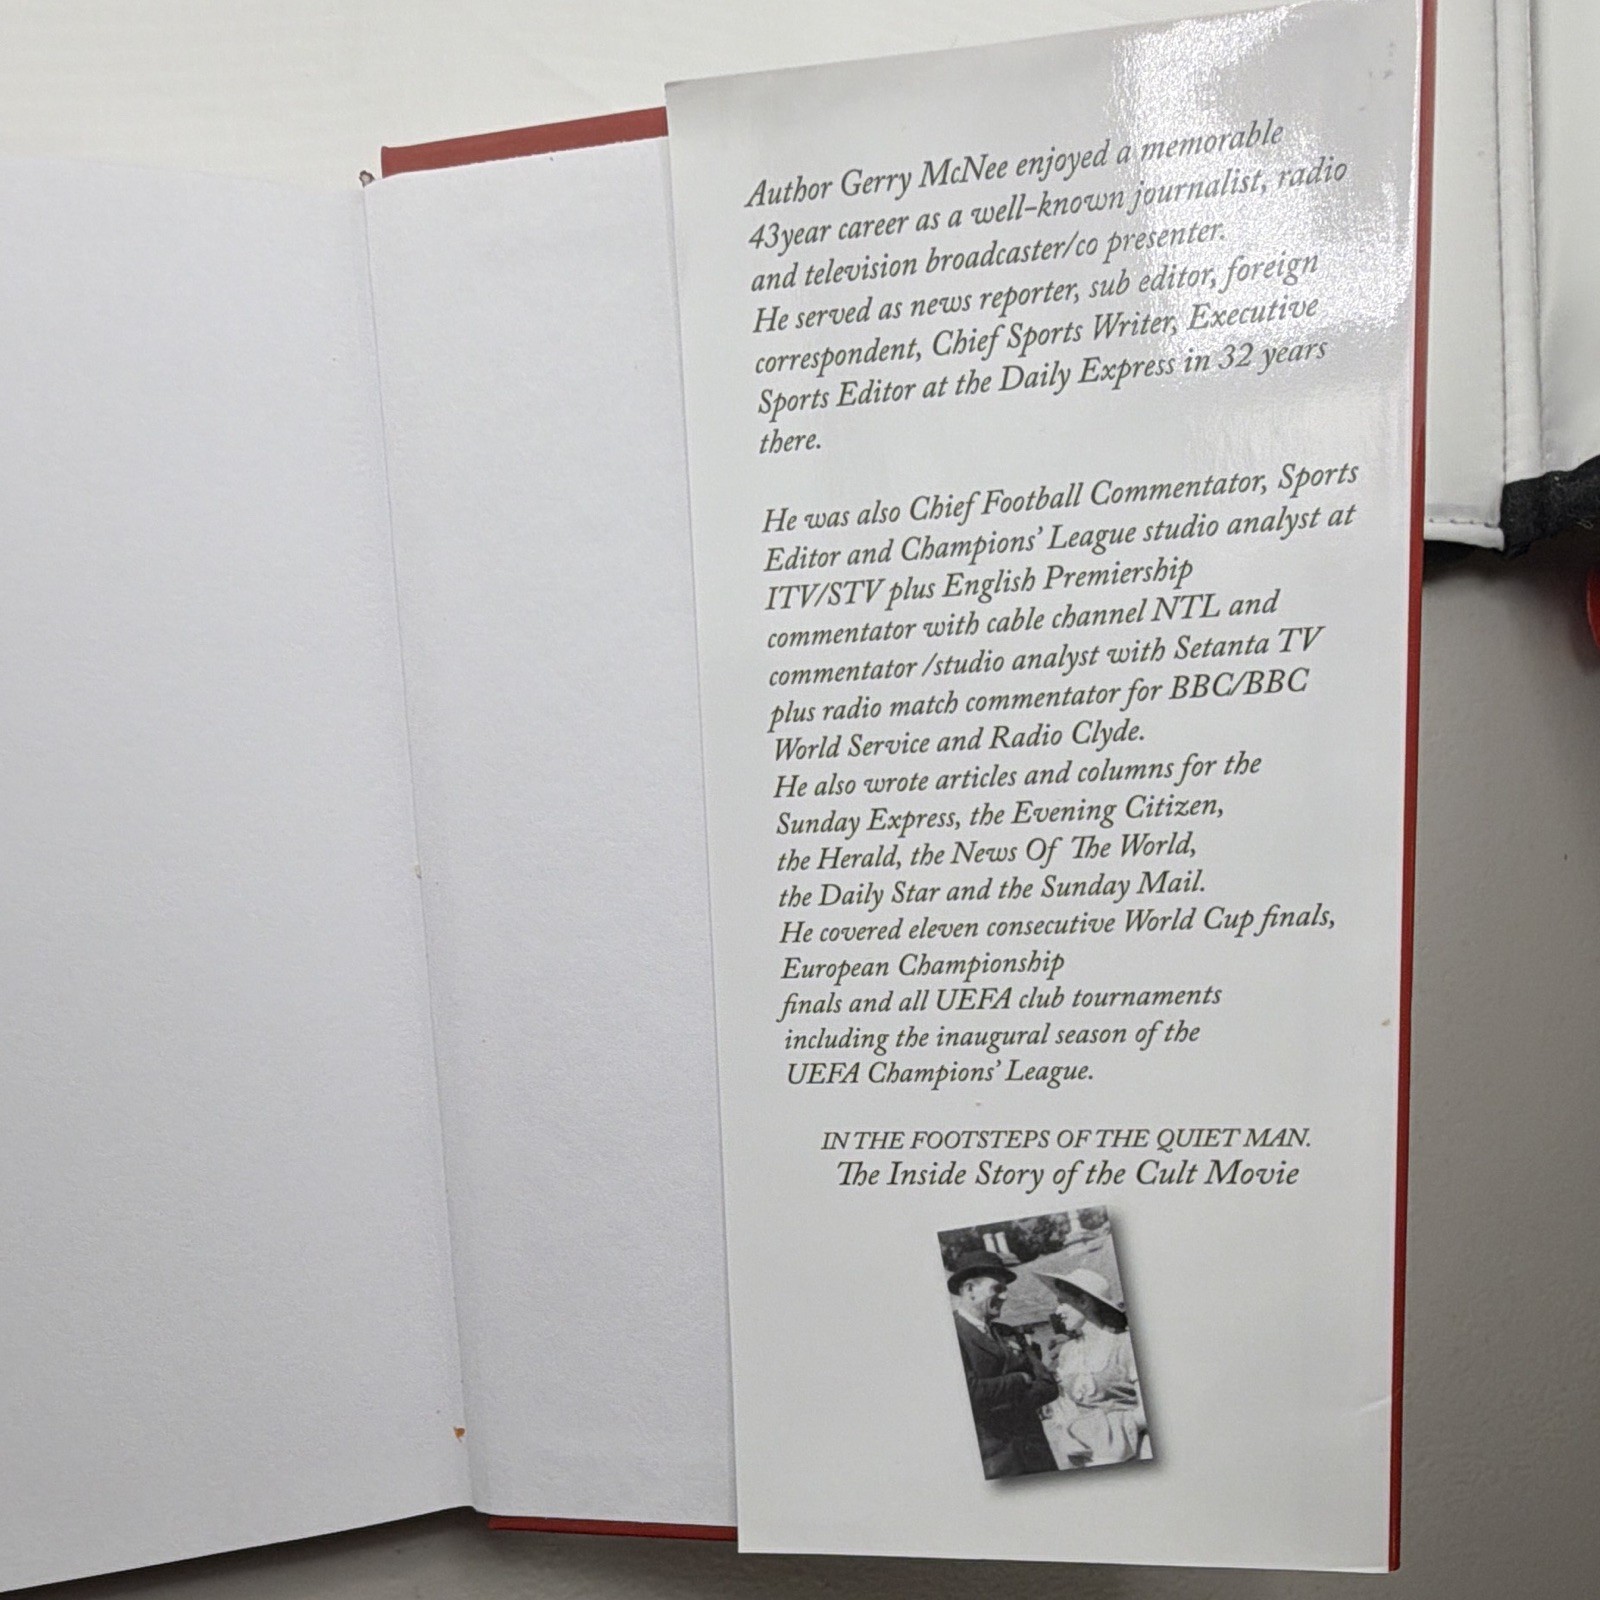 Author Gerry McNee enjoyed a memorable
43year career as a well-known journalist, radio
and television broadcaster/co presenter.
He served as news reporter, sub editor, foreign
correspondent, Chief Sports Writer, Executive
Sports Editor at the Daily Express in 32 years
there.
He was also Chief Football Commentator, Sports
Editor and Champions' League studio analyst at
ITV/STV plus English Premiership
commentator with cable channel NTL and
commentator /studio analyst with Setanta TV
plus radio match commentator for BBC/BBC
World Service and Radio Clyde.
He also wrote articles and columns for the
Sunday Express, the Evening Citizen,
the Herald, the News Of The World,
the Daily Star and the Sunday Mail.
He covered eleven consecutive World Cup finals,
European Championship
finals and all UEFA club tournaments
including the inaugural season of the
UEFA Champions' League.
IN THE FOOTSTEPS OF THE QUIET MAN.
The Inside Story of the Cult Movie